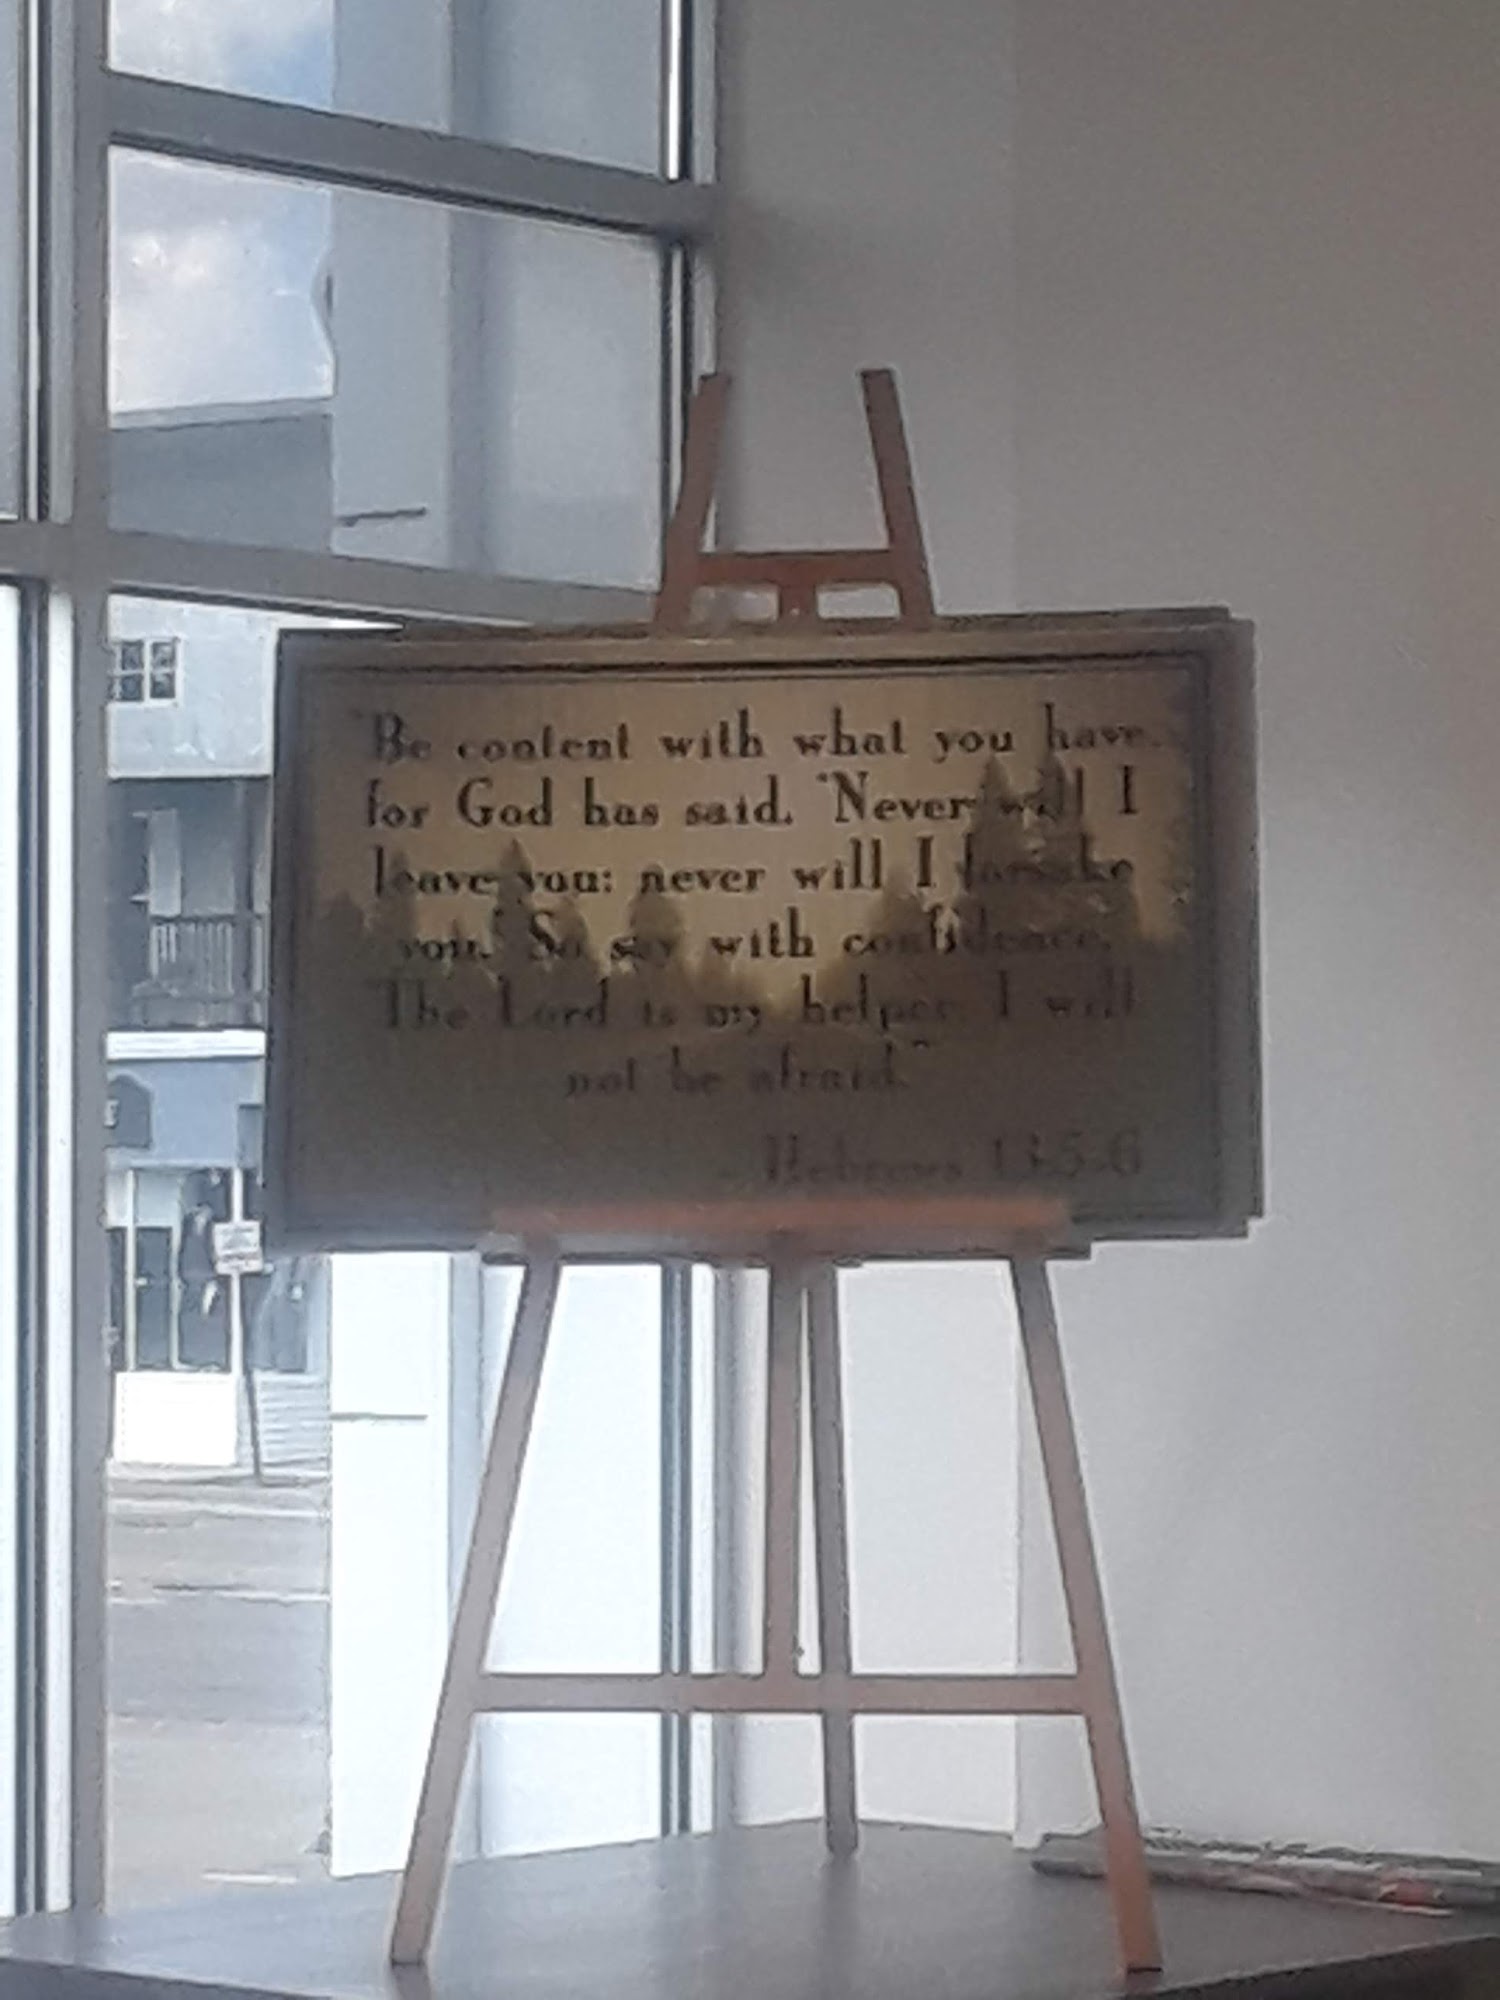 "Be content with what you have,
for God has said, "Never will I
leave you; never will I forsake
you." So say with confidence,
"The Lord is my helper; I will
not be afraid."
- Hebrews 13:5-6